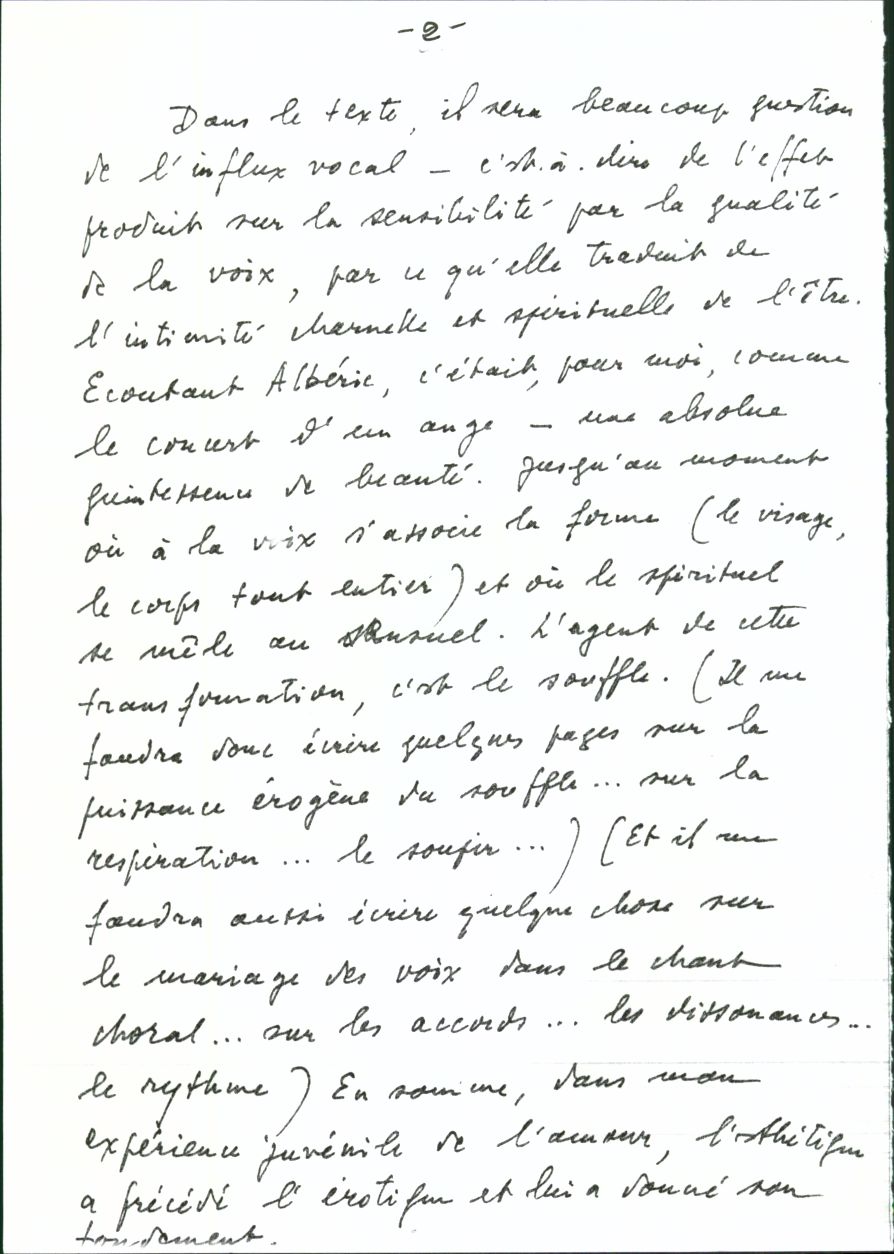 -2-
Dans le texte, il sera beaucoup question
de l'influx vocal – c'est.à.dire de l'effet
produit sur la sensibilité par la qualité
de la voix, par ce qu'elle traduit de
l'intimité charnelle et spirituelle de l'être.
Ecoutant Albéric, c'était, pour moi, comme
le concert d'un ange – une absolue
quintessence de beauté. Jusqu'au moment
où à la voix s'associe la forme (le visage,
le corps tout entier) et où le spirituel
se mêle au sensuel. L'agent de cette
transformation, c'est le souffle. (Il me
faudra donc écrire quelques pages sur la
puissance érogène du souffle... sur la
respiration ... le soupir ...) (Et il me
faudra aussi écrire quelque chose sur
le mariage des voix dans le chant
choral... sur les accords ... les dissonances...
le rythme) En somme, dans mon
expérience juvénile de l'amour, l'esthétique
a précédé l'érotique et lui a donné son
fondement.